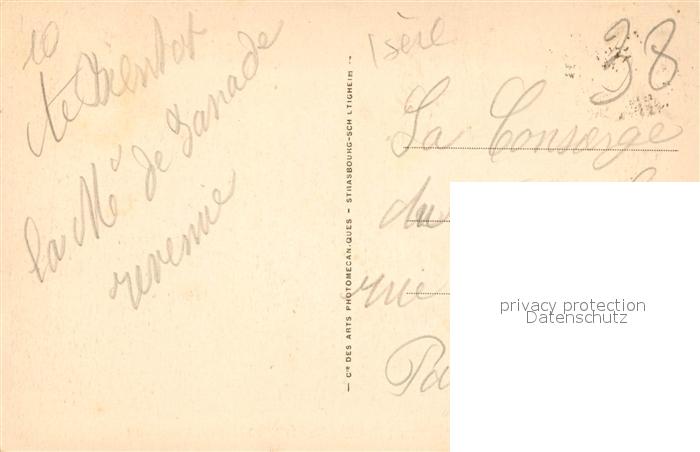 10
la Mé de
revenue
Cie DES ARTS PHOTOMECANIQUES - STRASBOURG-SCHILTIGHEIM
Isère
38
La Conserge
du
rue
Pa
privacy protection
Datenschutz